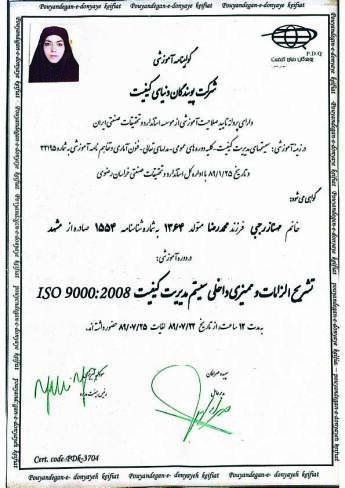 Pouyandegan-e-donyaye keifiat Pouyandegan-e-donyaye keifiat
P.D.Q
پویندگان دنیای کیفیت
گواهینامه آموزشی
شرکت پویندگان دنیای کیفیت
دارای پروانه تایید صلاحیت آموزشی از موسسه استاندارد و تحقیقات صنعتی ایران
در زمینه آموزشی: سیستمهای مدیریت کیفیت، کلیه دوره های عمومی، مدلهای تعالی، فنون آماری و تفاهم نامه آموزشی به شماره ۲۲۱۹۵
و تاریخ ۸۹/۱/۲۵ با اداره کل استاندارد و تحقیقات صنعتی خراسان رضوی
گواهی می شود:
خانم مهناز رجبی فرزند محمدرضا متولد ۱۳۶۴ به شماره شناسنامه ۱۵۵۴ صادره از مشهد
در دوره آموزشی:
تشریح الزامات و ممیزی داخلی سیستم مدیریت کیفیت ISO 9000:2008
به مدت ۱۲ ساعت از تاریخ ۸۹/۰۷/۲۲ لغایت ۸۹/۰۷/۲۵ حضور داشته اند.
مدیر عامل
رئیس هیئت مدیره
Cert. code:PDk-3704
Pouyandegan-e- donyayeh keifiat Pouyandegan-e- donyayeh keifiat